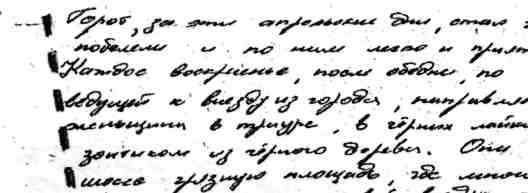 Город, за эти апрельские дни, стал
побелели и по ним легко и
Каждое воскресенье, после обедни, по
ведущей к выезду из города,
женщина в трауре, в чёрных
зонтиком из чёрного дерева. Она
шоссе грязную площадь, где много